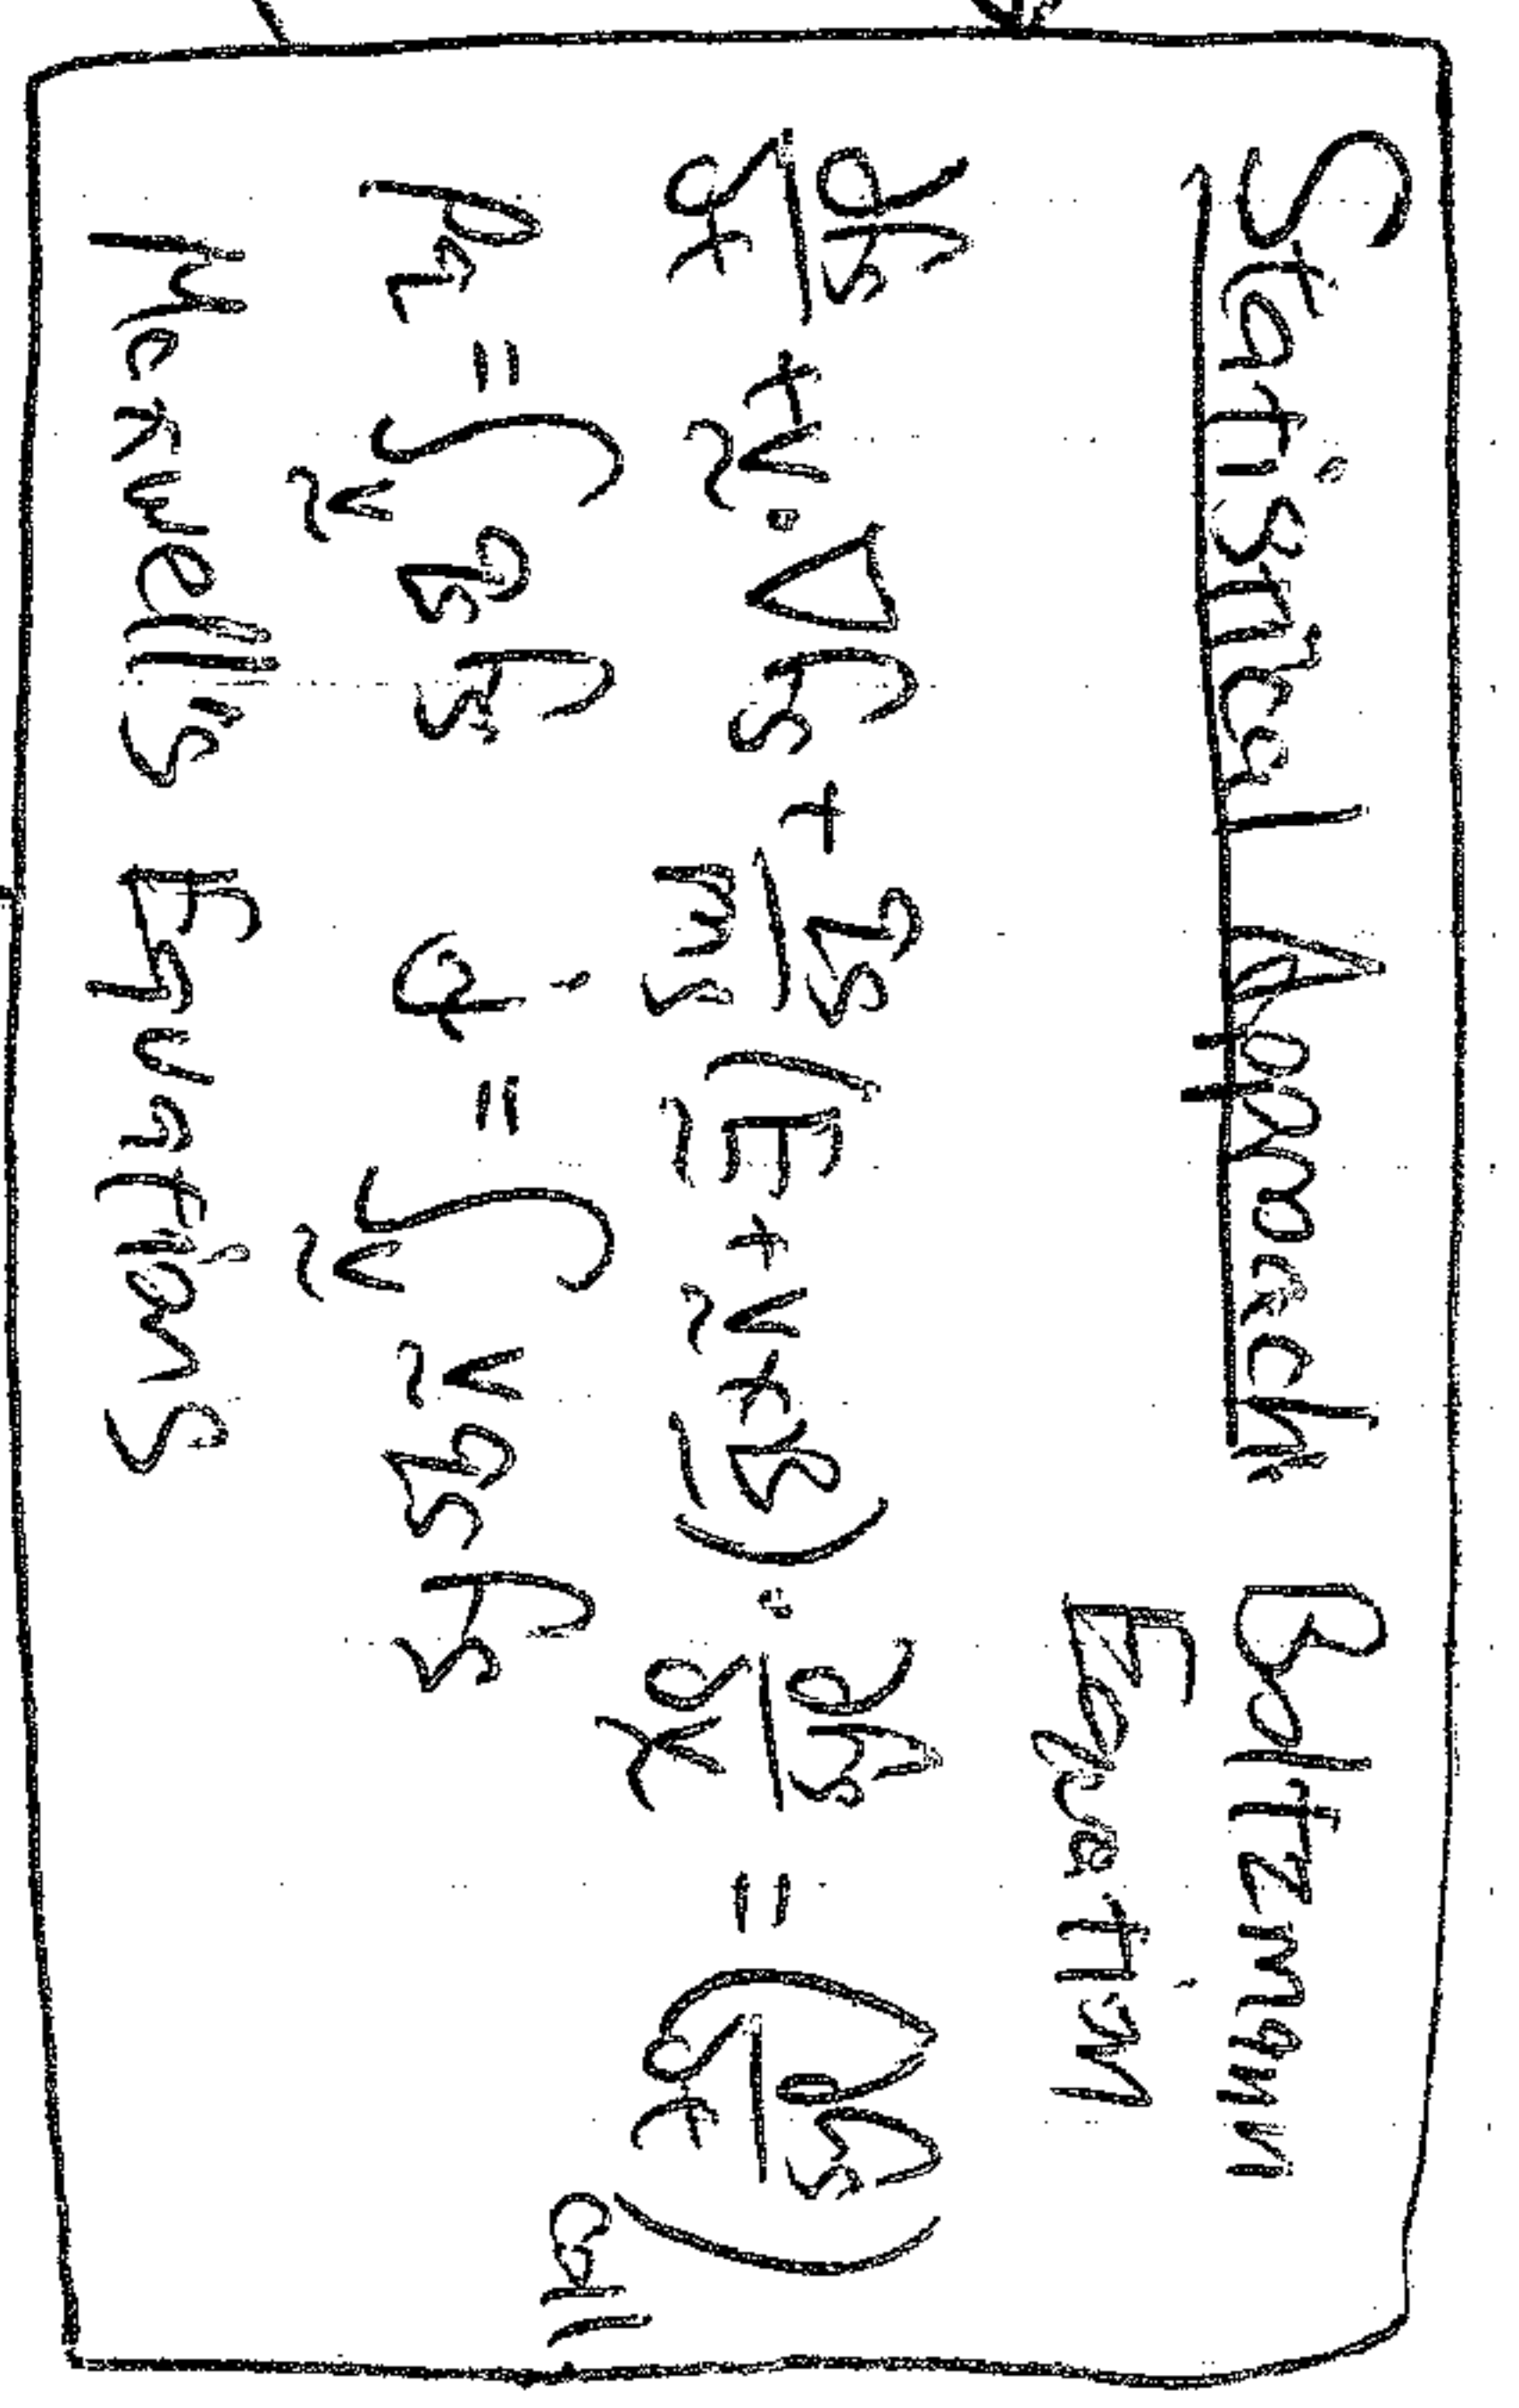 Statistical Approach Boltzmann
Equation
∂f_s/∂t + v · ∇f_s + q_s/m_s (E + v × B) · ∂f_s/∂v = (∂f_s/∂t)_coll
= ∫_v q_s f_s = ∫_v v q_s f_s
Maxwell's Equations